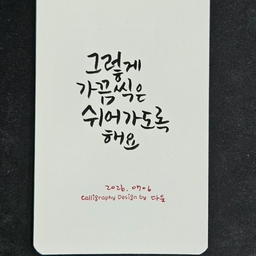 그렇게
가끔씩은
쉬어가도록
해요
2026. 07.06
Calligraphy Design by 다움